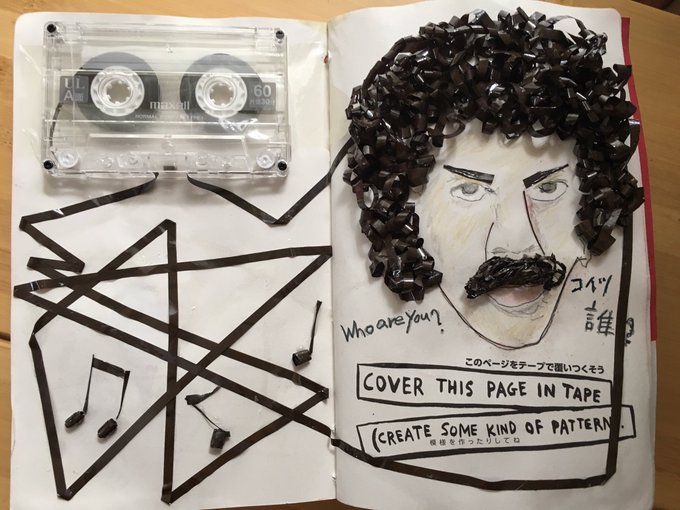 LL
A面
maxell
60
NORMAL
Who are you?
コイツ
誰?
このページをテープで覆いつくそう
COVER THIS PAGE IN TAPE
(CREATE SOME KIND OF PATTERN.
模様を作ったりしてね